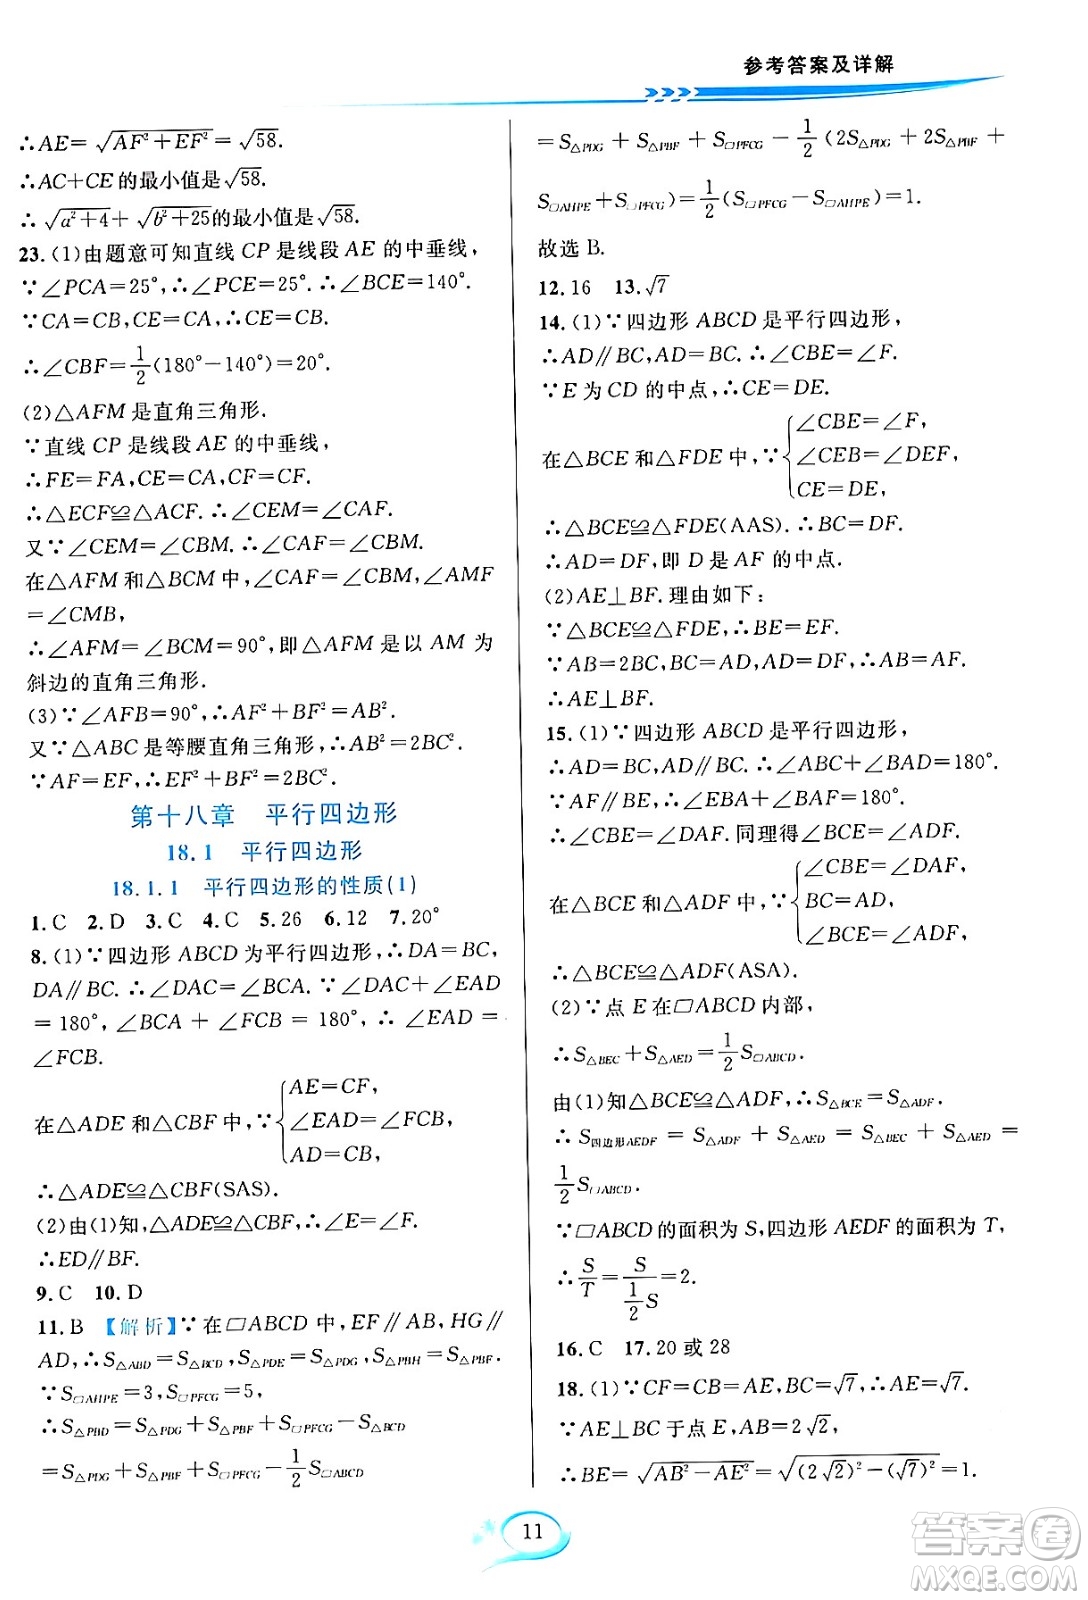 参考答案及详解
∴AE=√(AF²+EF²)=√58.
∴AC+CE的最小值是√58.
∴√(a²+4)+√(b²+25)的最小值是√58.
23.(1)由题意可知直线CP是线段AE的中垂线,
∵∠PCA=25°,∴∠PCE=25°.∴∠BCE=140°.
∵CA=CB,CE=CA,∴CE=CB.
∴∠CBF=1/2(180°-140°)=20°.
(2)△AFM是直角三角形.
∵直线CP是线段AE的中垂线,
∴FE=FA,CE=CA.又CF=CF.
∴△ECF≌△ACF.∴∠CEM=∠CAF.
又∵∠CEM=∠CBM.∴∠CAF=∠CBM.
在△AFM和△BCM中,∠CAF=∠CBM,∠AMF
=∠CMB,
∴∠AFM=∠BCM=90°,即△AFM是以AM为
斜边的直角三角形.
(3)∵∠AFB=90°,∴AF²+BF²=AB².
又∵△ABC是等腰直角三角形,∴AB²=2BC².
∵AF=EF,∴EF²+BF²=2BC².
第十八章 平行四边形
18.1 平行四边形
18.1.1 平行四边形的性质(1)
1.C 2.D 3.C 4.C 5.26 6.12 7.20°
8.(1)∵四边形ABCD为平行四边形,∴DA=BC,
DA∥BC.∴∠DAC=∠BCA.∵∠DAC+∠EAD
=180°,∠BCA+∠FCB=180°,∴∠EAD=
∠FCB.
在△ADE和△CBF中,∵{AE=CF,
∠EAD=∠FCB,
AD=CB,
∴△ADE≌△CBF(SAS).
(2)由(1)知,△ADE≌△CBF,∴∠E=∠F.
∴ED∥BF.
9.C 10.D
11.B 【解析】∵在□ABCD中,EF∥AB,HG∥
AD,∴S△ABD=S△BCD,S△PDE=S△PDG,S△PBH=S△PBF.
∵S□AHPE=3,S□PFCG=5,
∴S△PBD=S△PDG+S△PBF+S□PFCG-S△BCD
=S△PDG+S△PBF+S□PFCG-1/2S□ABCD
=S△PDG+S△PBF+S□PFCG-1/2(2S△PDG+2S△PBF+
S□AHPE+S□PFCG)=1/2(S□PFCG-S□AHPE)=1.
故选B.
12.16 13.√7
14.(1)∵四边形ABCD是平行四边形,
∴AD∥BC,AD=BC.∴∠CBE=∠F.
∵E为CD的中点,∴CE=DE.
在△BCE和△FDE中,∵{∠CBE=∠F,
∠CEB=∠DEF,
CE=DE,
∴△BCE≌△FDE(AAS).∴BC=DF.
∴AD=DF,即D是AF的中点.
(2)AE⊥BF.理由如下:
∵△BCE≌△FDE,∴BE=EF.
∵AB=2BC,BC=AD,AD=DF,∴AB=AF.
∴AE⊥BF.
15.(1)∵四边形ABCD是平行四边形,
∴AD=BC,AD∥BC.∴∠ABC+∠BAD=180°.
∵AF∥BE,∴∠EBA+∠BAF=180°.
∴∠CBE=∠DAF.同理得∠BCE=∠ADF.
在△BCE和△ADF中,∵{∠CBE=∠DAF,
BC=AD,
∠BCE=∠ADF,
∴△BCE≌△ADF(ASA).
(2)∵点E在□ABCD内部,
∴S△BEC+S△AED=1/2S□ABCD.
由(1)知△BCE≌△ADF,∴S△BCE=S△ADF.
∴S四边形AEDF=S△ADF+S△AED=S△BEC+S△AED=
1/2S□ABCD.
∵□ABCD的面积为S,四边形AEDF的面积为T,
∴S/T=S/(1/2S)=2.
16.C 17.20或28
18.(1)∵CF=CB=AE,BC=√7,∴AE=√7.
∵AE⊥BC于点E,AB=2√2,
∴BE=√(AB²-AE²)=√((2√2)²-(√7)²)=1.
11
答案卷
MXQE.COM